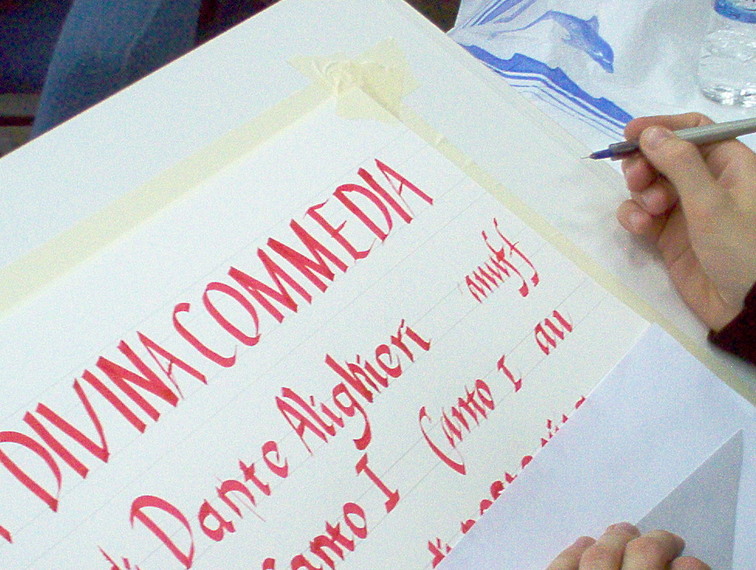 DIVINA COMMEDIA
di Dante Alighieri
Canto I
Canto I au